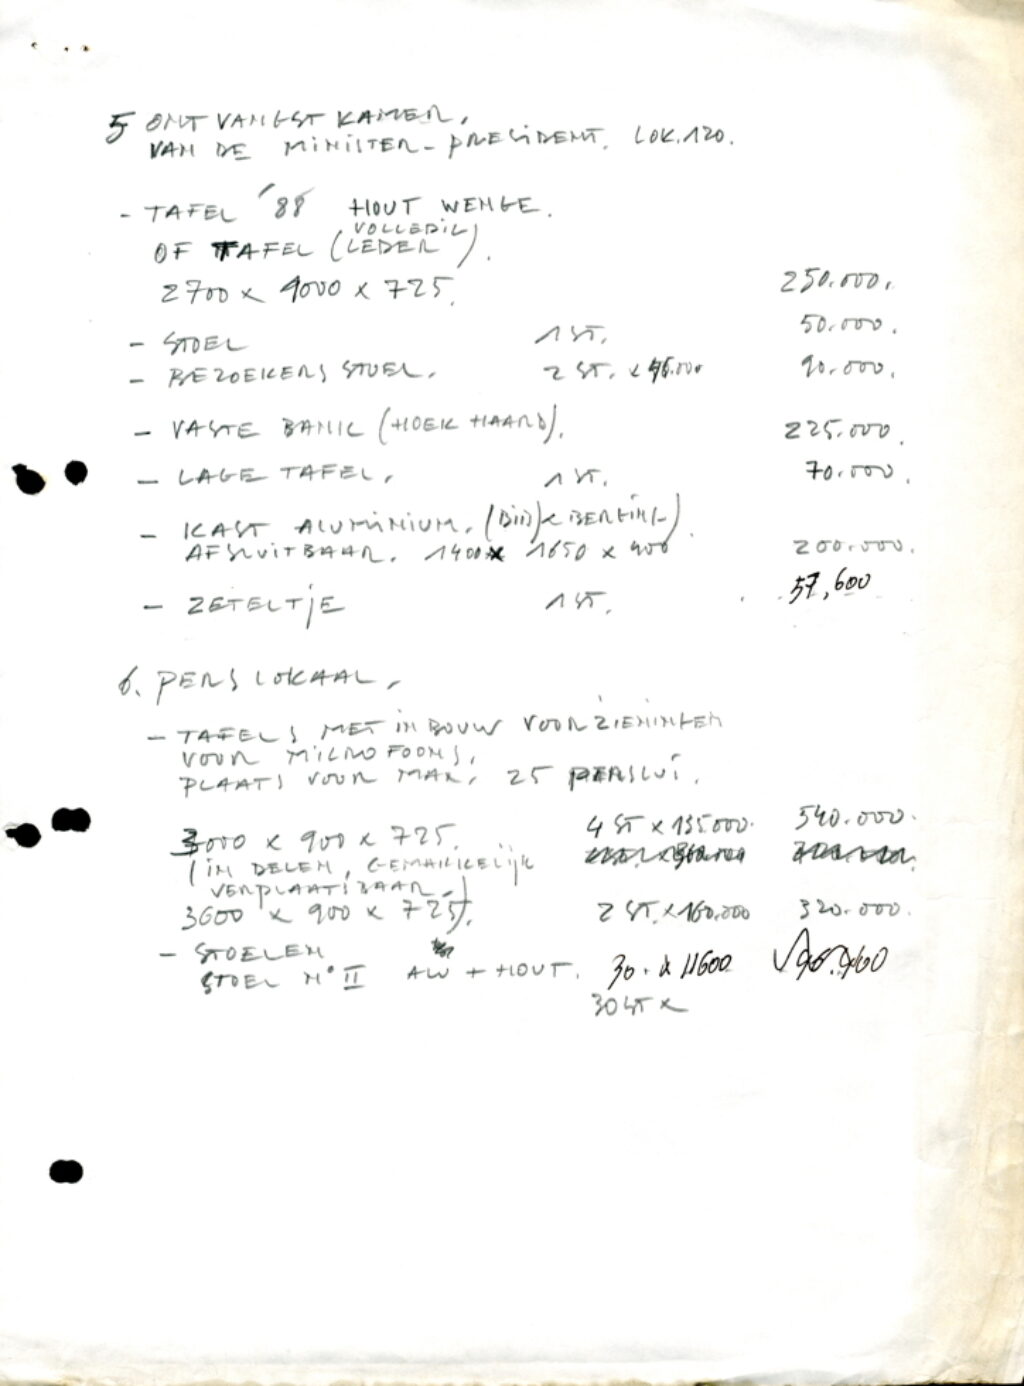 5 ONTVANGST KAMER,
VAN DE MINISTER-PRESIDENT. LOK.120.
- TAFEL '88 HOUT WENGE.
VOLLEDIG
OF TAFEL (LEDER).
2700 x 9000 x 725. 250.000.
- STOEL 1 ST. 50.000.
- BEZOEKERS STOEL. 2 ST. x 45.000 90.000.
- VASTE BANK (HOEK HAARD). 225.000.
- LAGE TAFEL. 1 ST. 70.000.
- KAST ALUMINIUM.
AFSLUITBAAR. 1400 x 1650 x 400 200.000.
- ZETELTJE 1 ST. 57,600
6. PERS LOKAAL,
- TAFELS MET INBOUW VOORZIENINGEN
VOOR MICROFOONS,
PLAATS VOOR MAX. 25 PERSLUI.
3000 x 900 x 725. 4 ST x 135.000. 540.000.
(IN DELEN, GEMAKKELIJK
VERPLAATSBAAR.)
3600 x 900 x 725). 2 ST. x 160.000 320.000.
- STOELEN
STOEL N° II ALU + HOUT. 30. x 11600
30 ST x